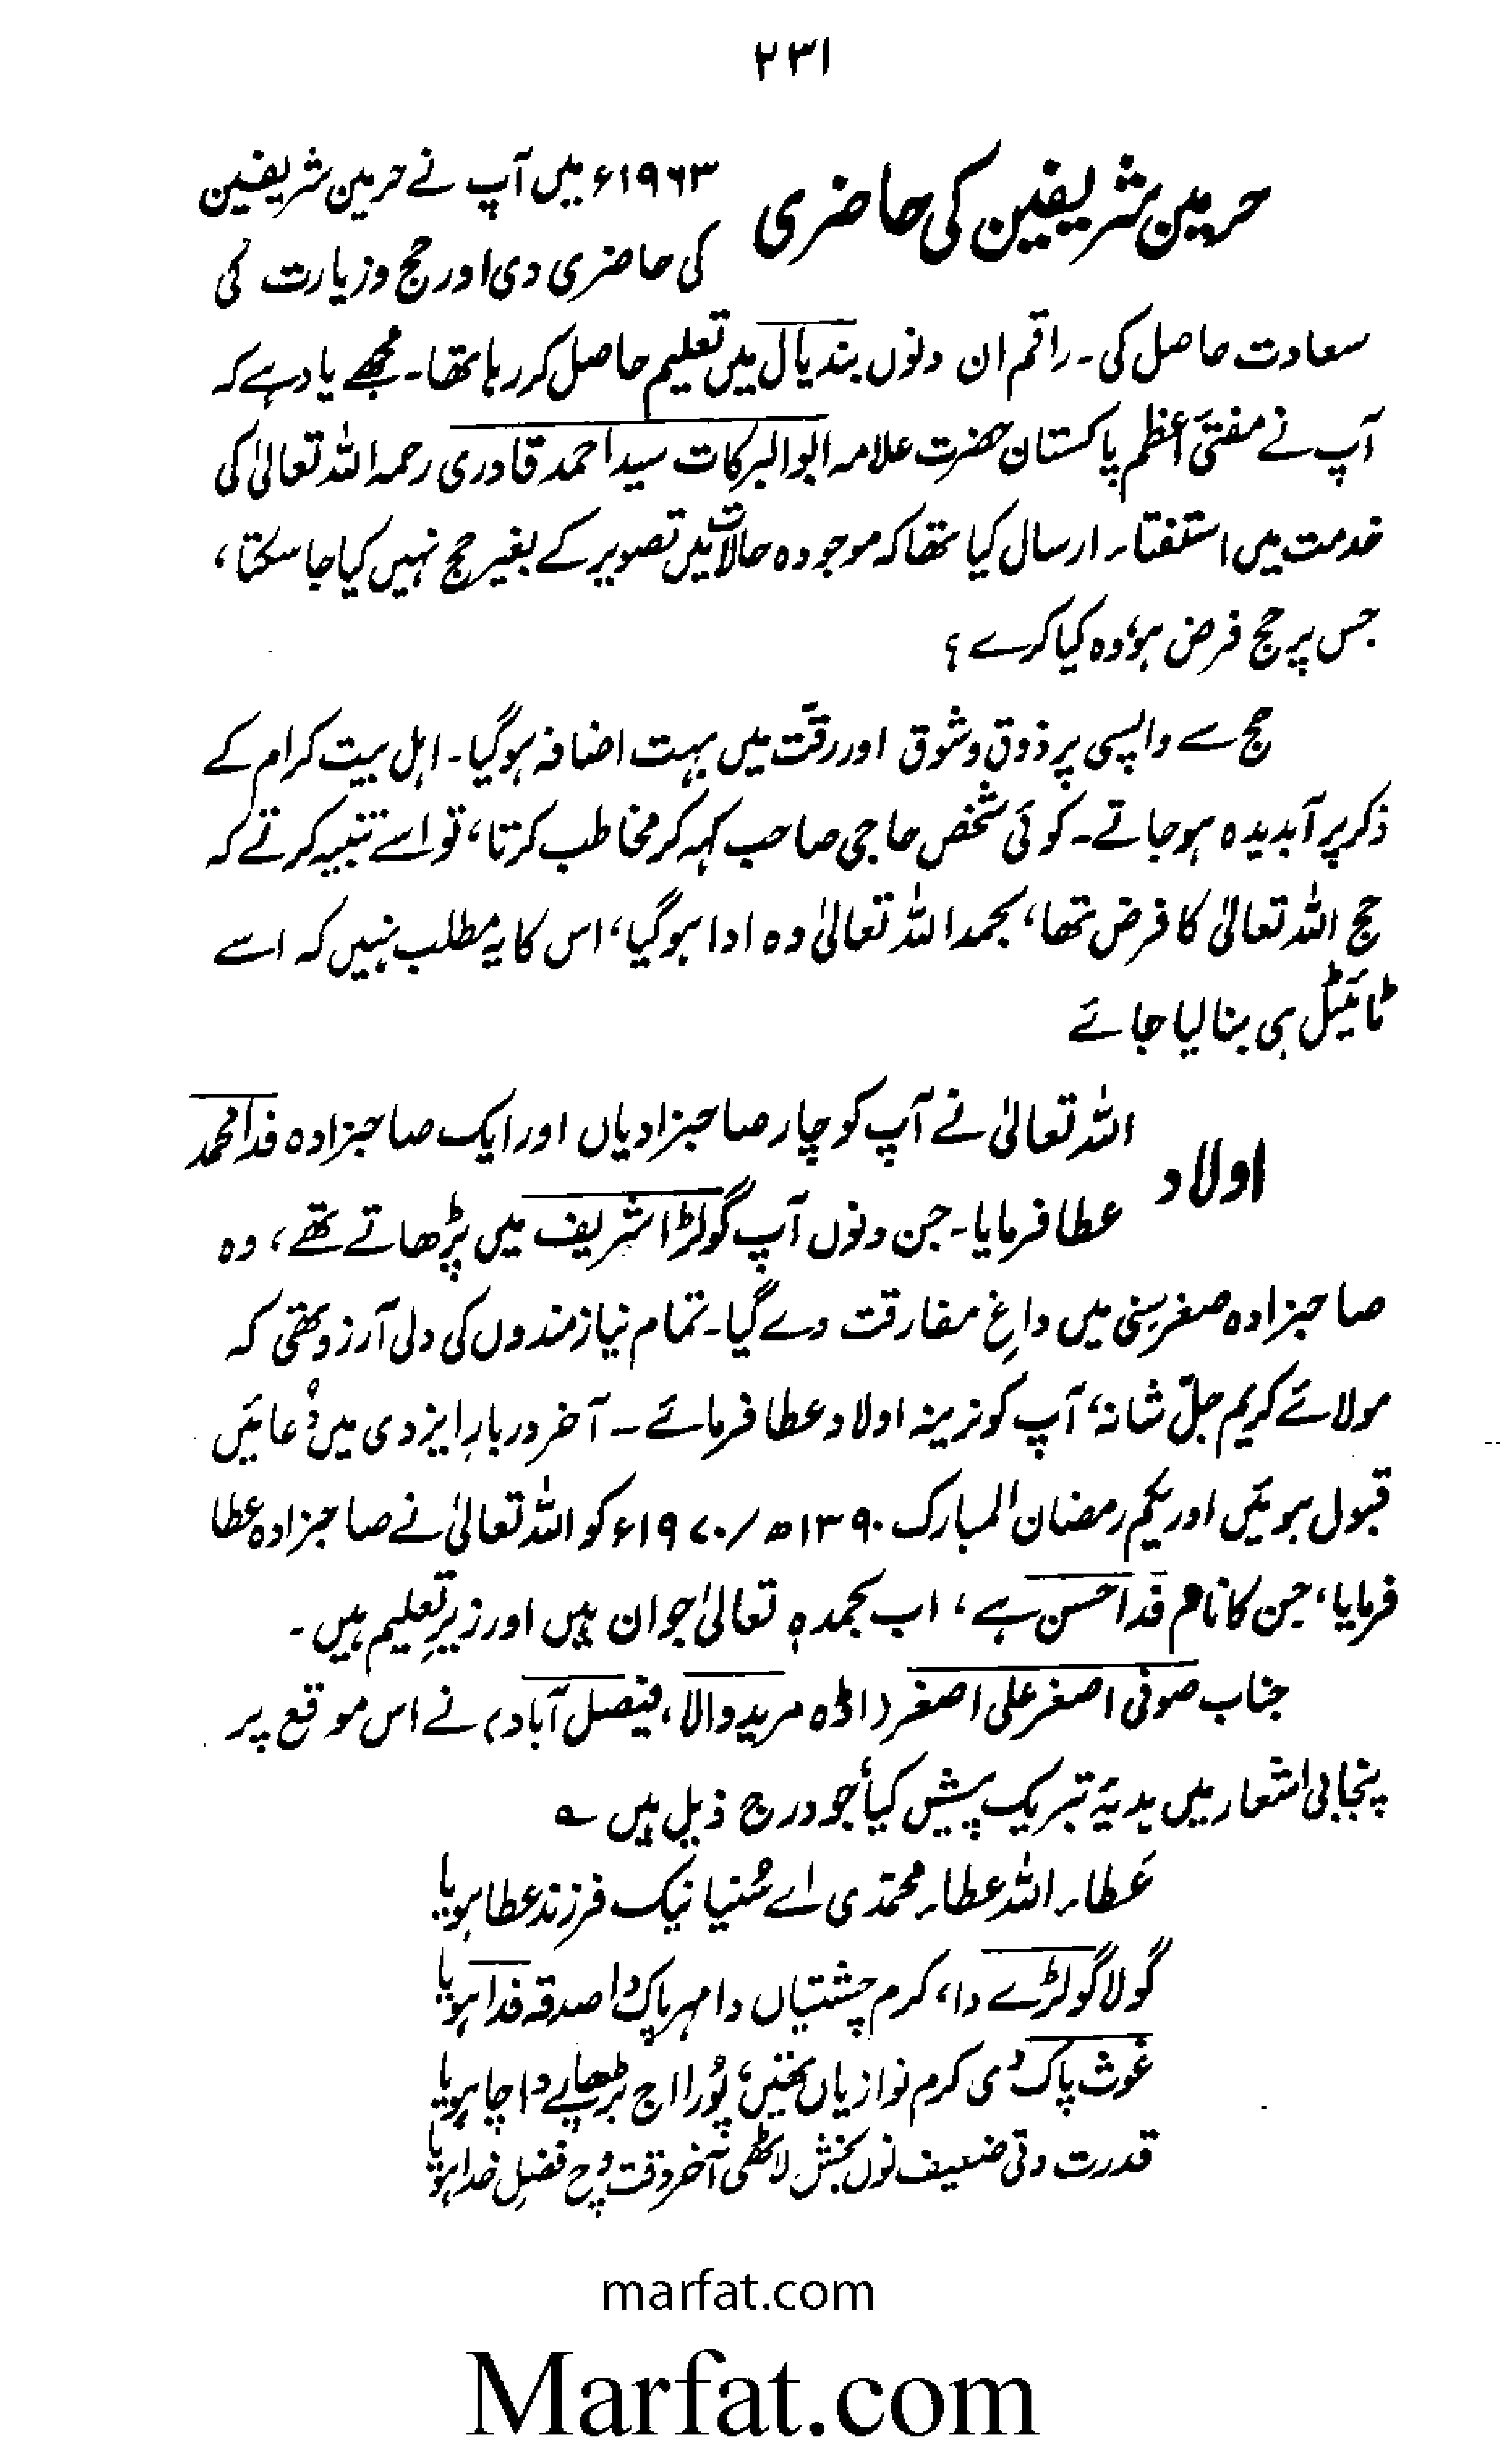 ۲۳۱
حرمین شریفین کی حاضری
۱۹۶۳ء میں آپ نے حرمین شریفین
کی حاضری دی اور حج و زیارت کی
سعادت حاصل کی۔ راقم ان دنوں بندیال میں تعلیم حاصل کر رہا تھا۔ مجھے یاد ہے کہ
آپ نے مفتیٔ اعظم پاکستان حضرت علامہ ابوالبرکات سید احمد قادری رحمہ اللہ تعالیٰ کی
خدمت میں استفتاء ارسال کیا تھا کہ موجودہ حالات میں تصویر کے بغیر حج نہیں کیا جا سکتا،
جس پر حج فرض ہو، وہ کیا کرے؟
حج سے واپسی پر ذوق و شوق اور رقّت میں بہت اضافہ ہو گیا۔ اہل بیت کرام کے
ذکر پر آبدیدہ ہو جاتے۔ کوئی شخص حاجی صاحب کہہ کر مخاطب کرتا، تو اسے تنبیہ کرتے کہ
حج اللہ تعالیٰ کا فرض تھا، بحمد اللہ تعالیٰ وہ ادا ہو گیا، اس کا یہ مطلب نہیں کہ اسے
ٹائیٹل ہی بنا لیا جائے
اولاد
اللہ تعالیٰ نے آپ کو چار صاحبزادیاں اور ایک صاحبزادہ فدا محمد
عطا فرمایا۔ جن دنوں آپ گولڑا شریف میں پڑھاتے تھے، وہ
صاحبزادہ صغر سِنی میں داغِ مفارقت دے گیا۔ تمام نیازمندوں کی دلی آرزو تھی کہ
مولائے کریم جلّ شانہ، آپ کو نرینہ اولاد عطا فرمائے۔ آخر دربارِ ایزدی میں دُعائیں
قبول ہوئیں اور یکم رمضان المبارک ۱۳۹۰ھ/۱۹۷۰ء کو اللہ تعالیٰ نے صاحبزادہ عطا
فرمایا، جن کا نام فدا حسن ہے، اب بحمدہٖ تعالیٰ جوان ہیں اور زیرِ تعلیم ہیں۔
جناب صوفی اصغر علی اصغر (اڈہ مرید والا، فیصل آباد) نے اس موقع پر
پنجابی اشعار میں ہدیۂ تبریک پیش کیا، جو درج ذیل ہیں ؎
عَطاء اللہ عطاء محمّد دی اے سُنیا نیک فرزند عطا ہویا
گولا گولڑے دا، کرم چشتیاں دا مہر پاک دا صدقہ فدا ہویا
غوث پاک دی کرم نوازیاں تھیں، پُورا اج بڑھاپے دا چا ہویا
قدرت دتی ضعیف نوں بخش لاٹھی آخر وقت وِچ فضلِ خدا ہویا
marfat.com
Marfat.com